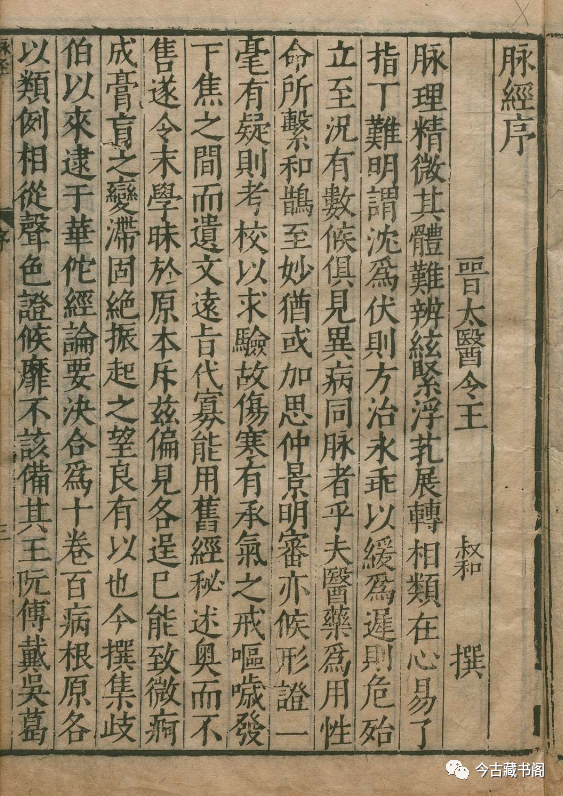 脉經序
晉太醫令王 叔和 撰
脉理精微其體難辨絃緊浮芤展轉相類在心易了
指下難明謂沈爲伏則方治永乖以緩爲遲則危殆
立至況有數候俱見異病同脉者乎夫醫藥爲用性
命所繫和鵲至妙猶或加思仲景明審亦候形證一
毫有疑則考校以求驗故傷寒有承氣之戒嘔噦發
下焦之間而遺文遠旨代寡能用舊經秘述奥而不
售遂令末學昧於原本斥茲偏見各逞已能致微痾
成膏肓之變滯固絶振起之望良有以也今撰集歧
伯以來逮于華佗經論要决合爲十卷百病根原各
以類例相從聲色證候靡不該備其王阮傅戴吳葛
脉經
序
今古藏书阁